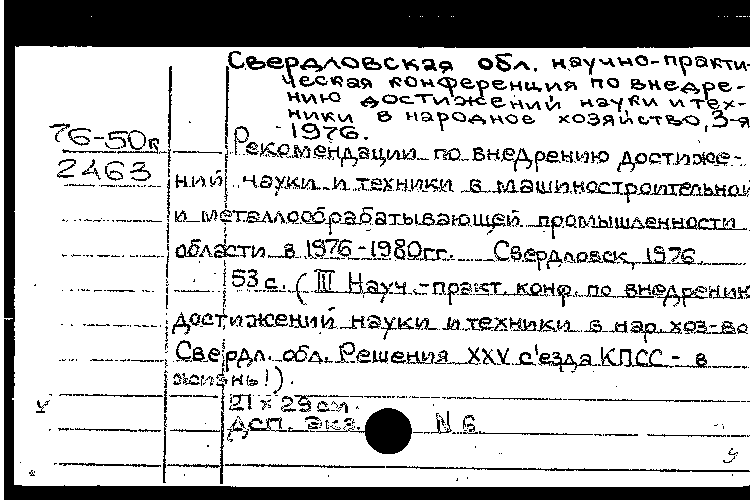 Свердловская обл. научно-практи-
ческая конференция по внедре-
нию достижений науки и тех-
ники в народное хозяйство, 3-я
76-50к
1976.
2463
Рекомендации по внедрению достиже-
ний науки и техники в машиностроительной
и металлообрабатывающей промышленности
области в 1976-1980гг. Свердловск, 1976.
53 с. (III Науч.-практ. конф. по внедрению
достижений науки и техники в нар. хоз-во
Свердл. обл. Решения XXV с'езда КПСС - в
жизнь!).
21 x 29 см.
Дсп. Экз. N 6.